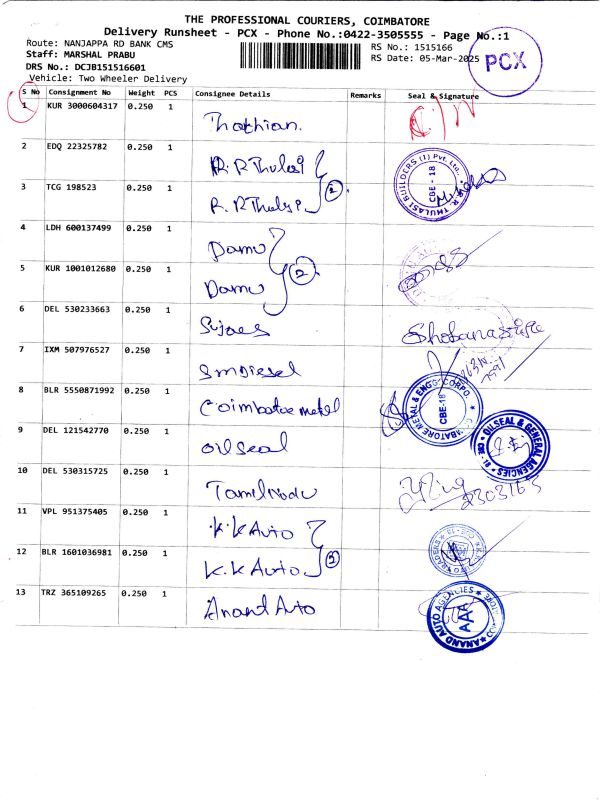 THE PROFESSIONAL COURIERS, COIMBATORE
Delivery Runsheet - PCX - Phone No.:0422-3505555 - Page No.:1
Route: NANJAPPA RD BANK CMS
RS No.: 1515166
Staff: MARSHAL PRABU
RS Date: 05-Mar-2025
PCX
DRS No.: DCJB151516601
Vehicle: Two Wheeler Delivery
S No Consignment No Weight PCS Consignee Details Remarks Seal & Signature
1 KUR 3000604317 0.250 1
2 EDQ 22325782 0.250 1 R. R Thulasi
3 TCG 198523 0.250 1 R. R Thulasi 2
R.R. THULASI BUILDERS (I) Pvt. Ltd.
CBE - 18
4 LDH 600137499 0.250 1 Damu
5 KUR 1001012680 0.250 1 Damu 2
6 DEL 530233663 0.250 1 Shobana
7 IXM 507976527 0.250 1 Sm Diesel
8 BLR 5550871992 0.250 1 Coimbatore metel
COIMBATORE METAL & ENGG CORPO.
CBE-18
9 DEL 121542770 0.250 1 oil seal
OILSEAL & GENERAL AGENCIES CBE - 18
10 DEL 530315725 0.250 1 Tamil Nadu
11 VPL 951375405 0.250 1 K. K Auto
12 BLR 1601036981 0.250 1 K. K Auto 2
13 TRZ 365109265 0.250 1 Anand Auto
ANAND AUTO AGENCIES
AAA